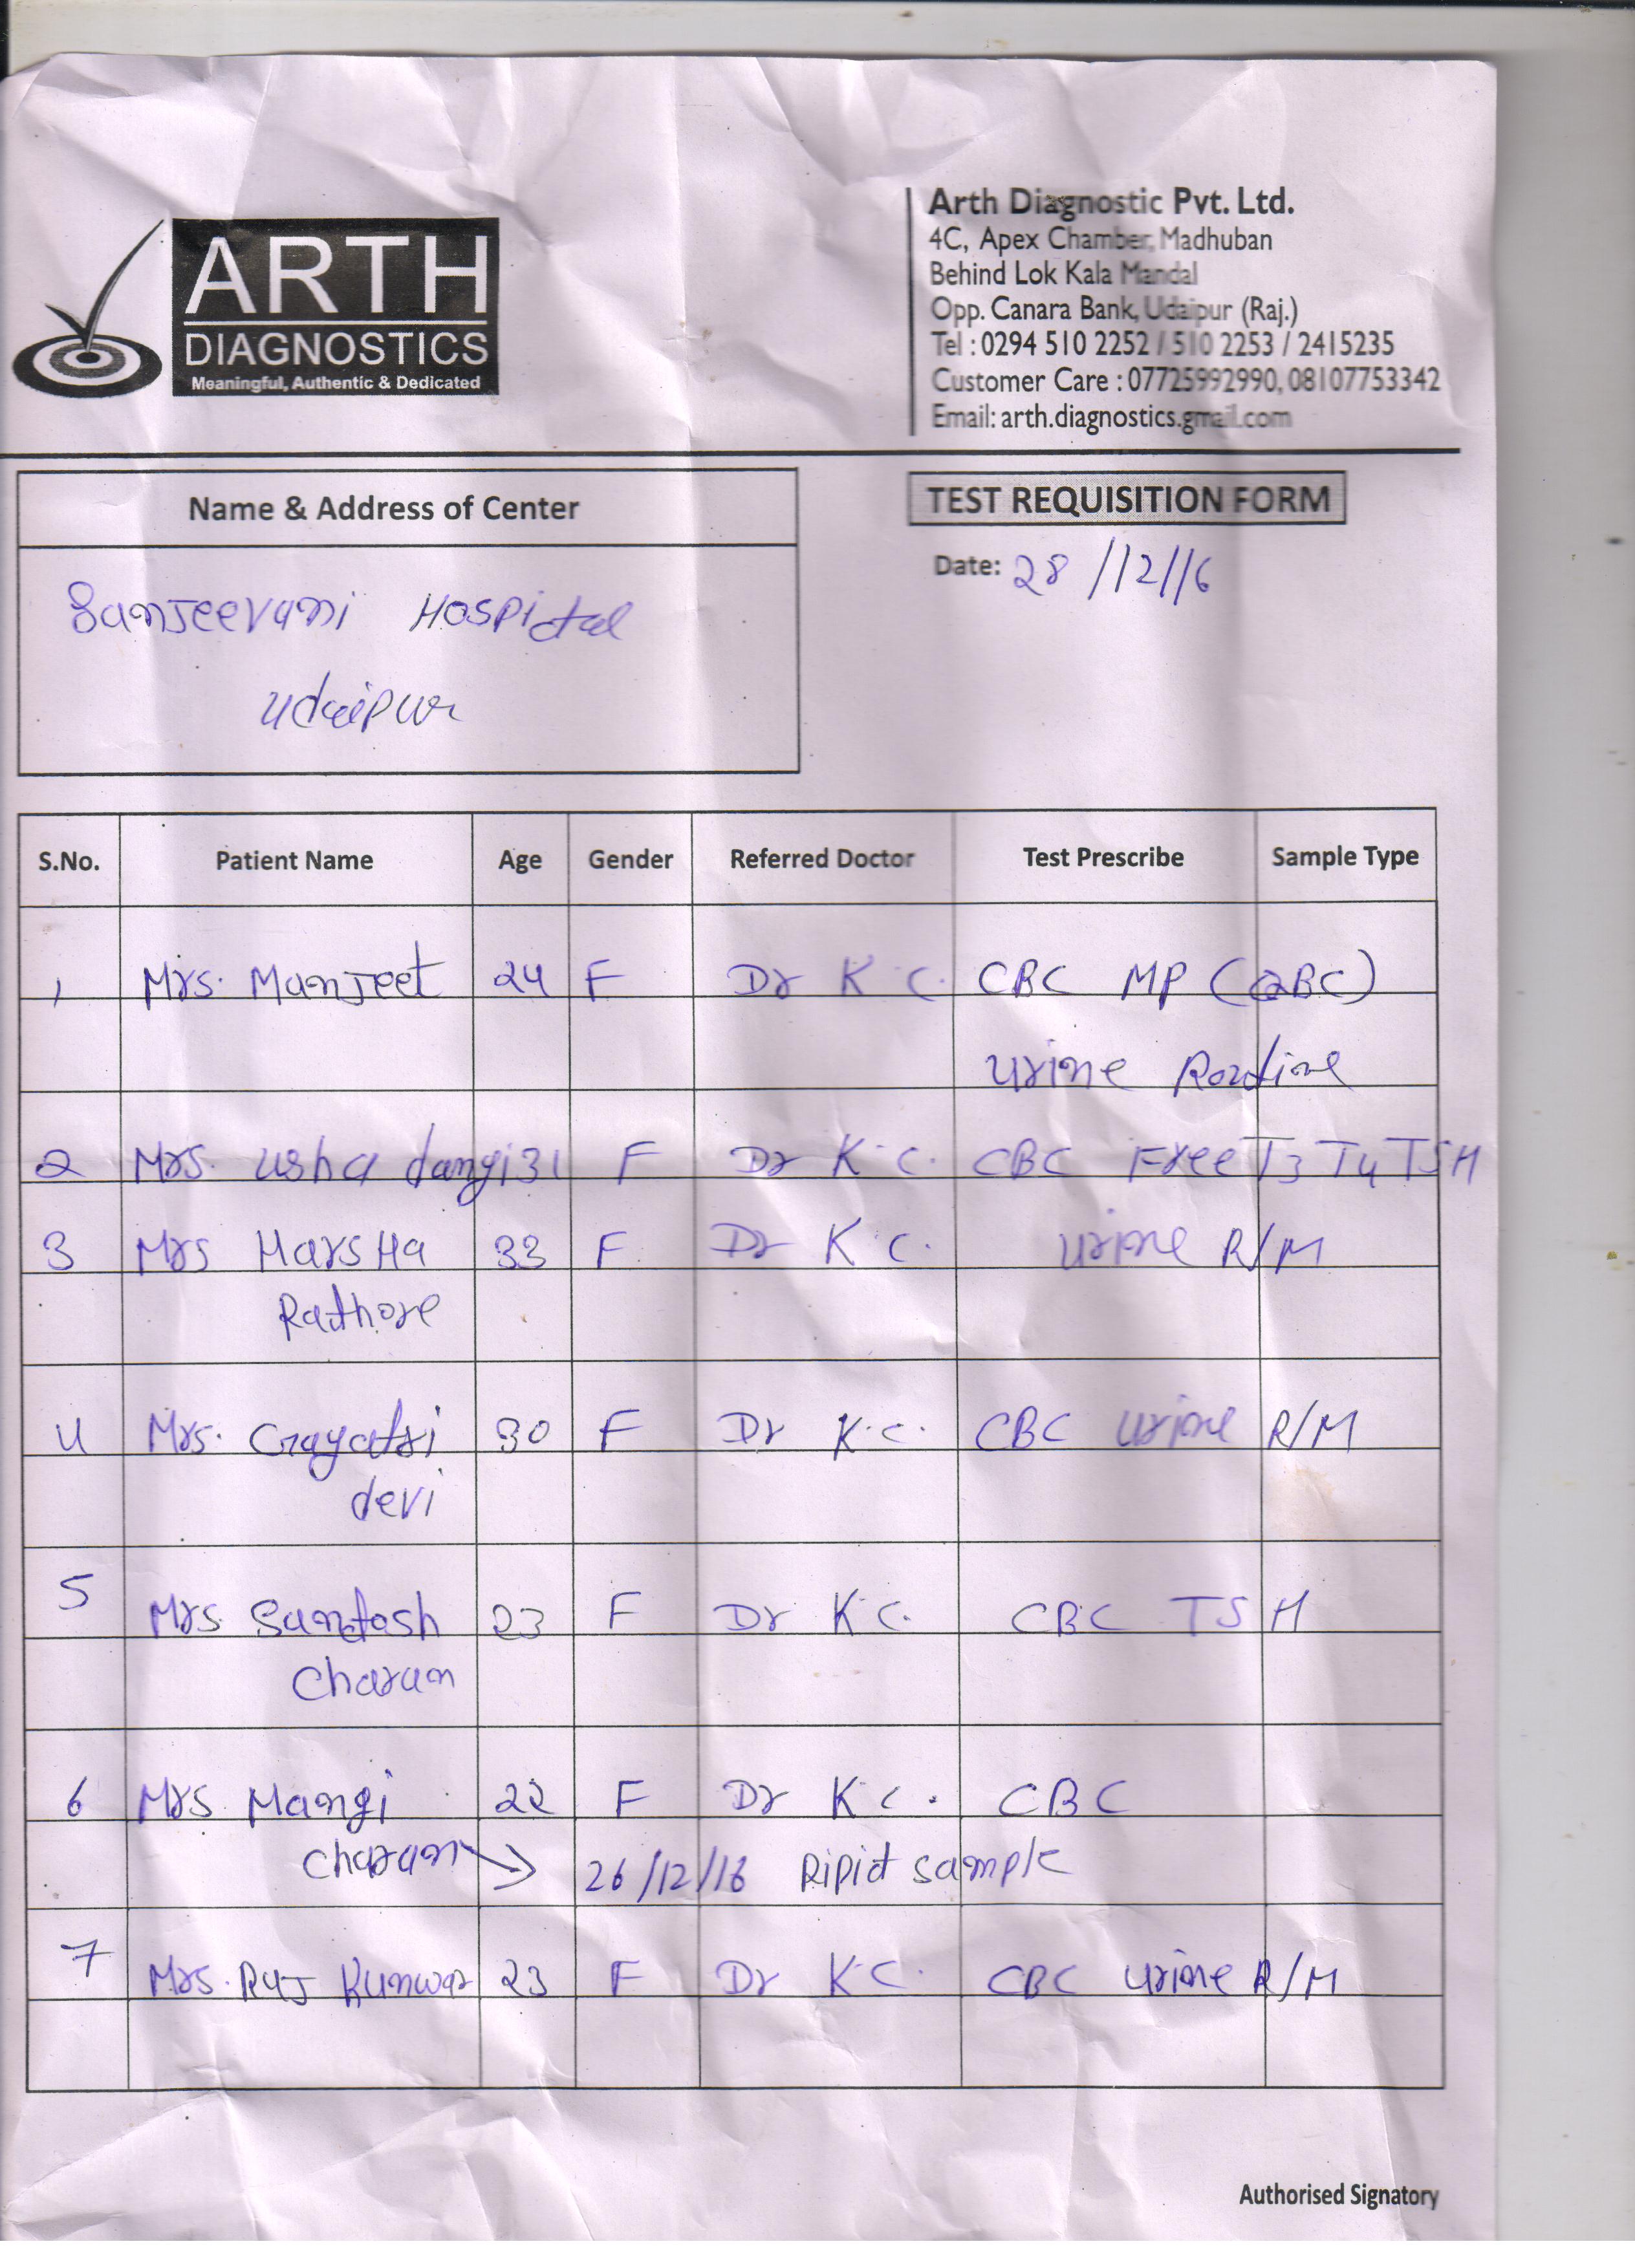 ARTH
DIAGNOSTICS
Meaningful, Authentic & Dedicated
Arth Diagnostic Pvt. Ltd.
4C, Apex Chamber, Madhuban
Behind Lok Kala Mandal
Opp. Canara Bank, Udaipur (Raj.)
Tel : 0294 510 2252 / 510 2253 / 2415235
Customer Care : 07725992990, 08107753342
Email: arth.diagnostics.gmail.com
Name & Address of Center
Sanjeevani Hospital
Udaipur
TEST REQUISITION FORM
Date: 28/12/16
S.No. Patient Name Age Gender Referred Doctor Test Prescribe Sample Type
1 Mrs. Manjeet 24 F Dr K.C. CBC MP (QBC)
Urine Routine
2 Mrs. Usha dangi 31 F Dr K.C. CBC Free T3 T4 TSH
3 Mrs Harsha 33 F Dr K.C. Urine R/M
Rathore
4 Mrs. Gayatri 30 F Dr K.C. CBC Urine R/M
devi
5 Mrs Santosh 23 F Dr K.C. CBC TSH
Charan
6 Mrs Mangi 22 F Dr K.C. CBC
Charan → 26/12/16 Ripit sample
7 Mrs. Raj Kunwar 23 F Dr K.C. CBC Urine R/M
Authorised Signatory